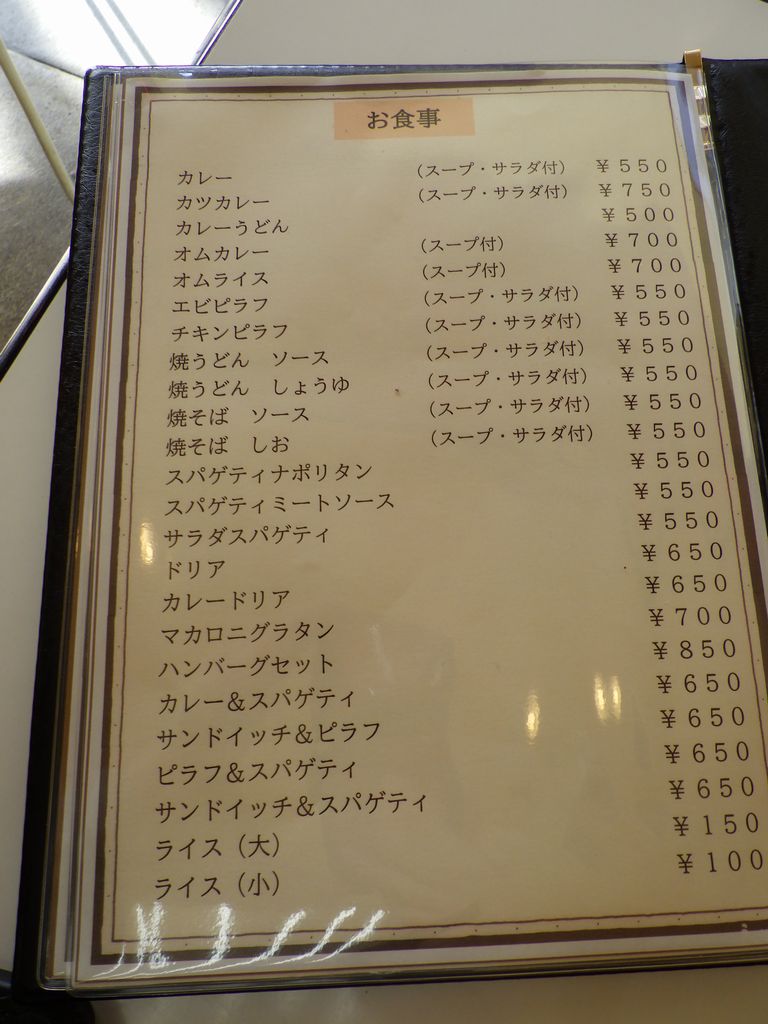 お食事
カレー （スープ・サラダ付） ￥５５０
カツカレー （スープ・サラダ付） ￥７５０
カレーうどん ￥５００
オムカレー （スープ付） ￥７００
オムライス （スープ付） ￥７００
エビピラフ （スープ・サラダ付） ￥５５０
チキンピラフ （スープ・サラダ付） ￥５５０
焼うどん　ソース （スープ・サラダ付） ￥５５０
焼うどん　しょうゆ （スープ・サラダ付） ￥５５０
焼そば　ソース （スープ・サラダ付） ￥５５０
焼そば　しお （スープ・サラダ付） ￥５５０
スパゲティナポリタン ￥５５０
スパゲティミートソース ￥５５０
サラダスパゲティ ￥５５０
ドリア ￥６５０
カレードリア ￥６５０
マカロニグラタン ￥７００
ハンバーグセット ￥８５０
カレー＆スパゲティ ￥６５０
サンドイッチ＆ピラフ ￥６５０
ピラフ＆スパゲティ ￥６５０
サンドイッチ＆スパゲティ ￥６５０
ライス（大） ￥１５０
ライス（小） ￥１００